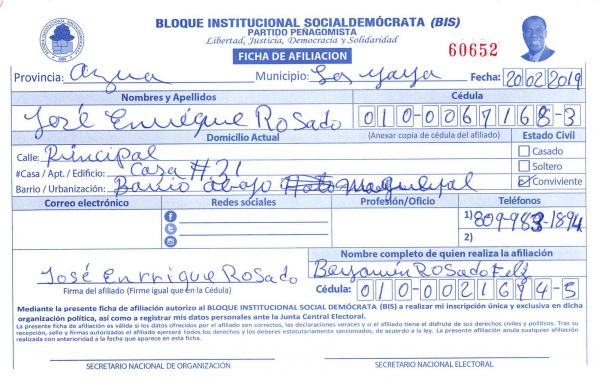 BLOQUE INSTITUCIONAL SOCIALDEMÓCRATA (BIS)
PARTIDO PEÑAGOMISTA
Libertad, Justicia, Democracia y Solidaridad
FICHA DE AFILIACION
60652
Provincia: Azua Municipio: Las Yayas Fecha: 20 02 2019
Nombres y Apellidos Cédula
José Enrrique Rosado 010-0067168-3
Domicilio Actual (Anexar copia de cédula del afiliado) Estado Civil
Calle: Principal Casado
#Casa / Apt. / Edificio: Casa #21 Soltero
Barrio / Urbanización: Barrio abajo Conviviente
Correo electrónico Redes sociales Profesión/Oficio Teléfonos
1) 809-983-1894
2)
Nombre completo de quien realiza la afiliación
José Enrrique Rosado Benjamín Rosado Feliz
Firma del afiliado (Firme igual que en la Cédula) Cédula: 010-0021674-5
Mediante la presente ficha de afiliación autorizo al BLOQUE INSTITUCIONAL SOCIAL DEMÓCRATA (BIS) a realizar mi inscripción única y exclusiva en dicha
organización política, así como a registrar mis datos personales ante la Junta Central Electoral.
La presente ficha de afiliación es válida si los datos ofrecidos por el afiliado son correctos, las declaraciones veraces y si el afiliado tiene el disfrute de sus derechos civiles y políticos. Tras su
recepción, sello y firmas autorizadas el afiliado ejercerá todos los derechos y los deberes estatutariamente sancionados, de acuerdo a la ley. La presente afiliación anula cualquier afiliación
realizada con anterioridad a la fecha que aparece en esta ficha.
SECRETARIO NACIONAL DE ORGANIZACIÓN SECRETARIO NACIONAL ELECTORAL